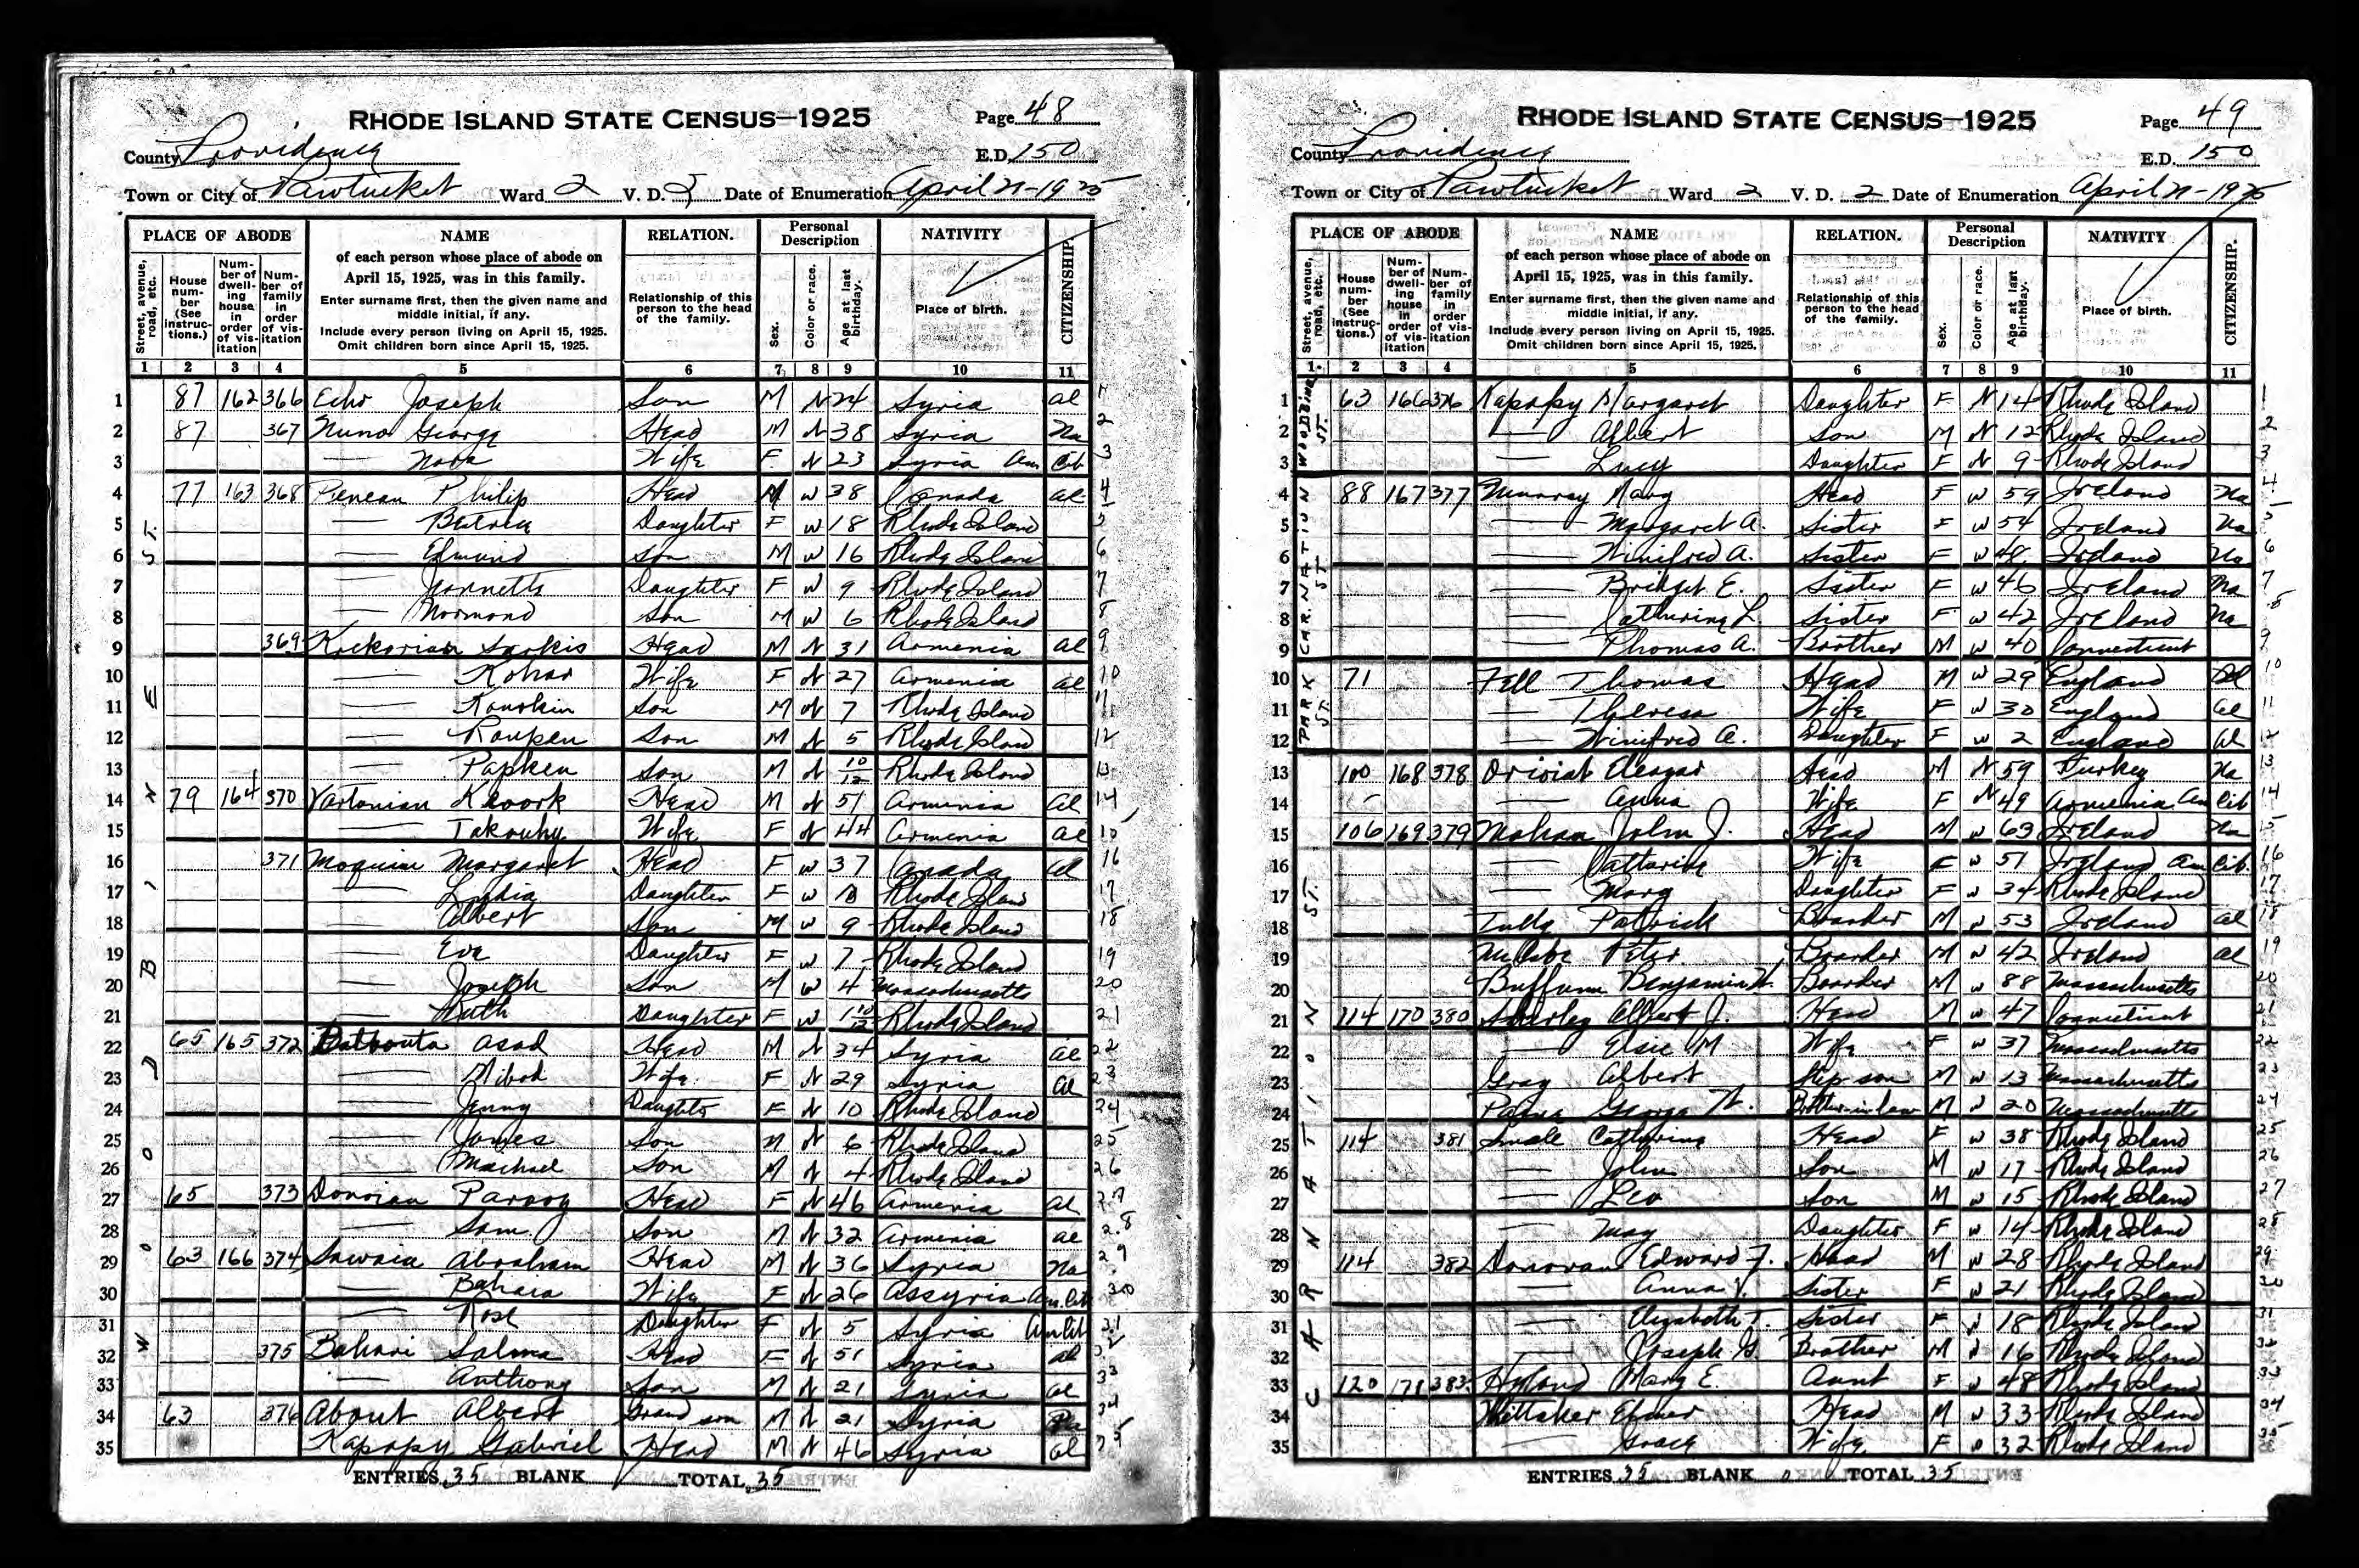 RHODE ISLAND STATE CENSUS—1925
Page 48
County Providence
E.D. 150
Town or City of Pawtucket Ward 2 V. D. Date of Enumeration April 21-1925
PLACE OF ABODE
Street, avenue, road, etc.
House number (See instructions.)
Number of dwelling house in order of visitation
Number of family in order of visitation
NAME
of each person whose place of abode on
April 15, 1925, was in this family.
Enter surname first, then the given name and
middle initial, if any.
Include every person living on April 15, 1925.
Omit children born since April 15, 1925.
RELATION.
Relationship of this
person to the head
of the family.
Personal
Description
Sex.
Color or race.
Age at last birthday.
NATIVITY
Place of birth.
CITIZENSHIP.
1 2 3 4 5 6 7 8 9 10 11
WOODBINE ST.
1 87 162 366 Echo Joseph Son M N 24 Syria al 1
2 87 367 Nuno George Head M N 38 Syria Na 2
3 — Nora Wife F N 23 Syria Am Cit 3
4 77 163 368 Philip Head M W 38 Canada al 4
5 — Daughter F W 18 Rhode Island 5
6 — Edmund Son M W 16 Rhode Island 6
7 — Jeannette Daughter F W 9 Rhode Island 7
8 — Normand Son M W 6 Rhode Island 8
9 369 Sarkis Head M N 31 Armenia al 9
10 — Kohar Wife F N 27 Armenia al 10
11 — Son M N 7 Rhode Island 11
12 — Roupen Son M N 5 Rhode Island 12
13 — Papken Son M N 10/12 Rhode Island 13
14 79 164 370 Vartonian Kevork Head M N 51 Armenia al 14
15 — Takouhy Wife F N 44 Armenia al 15
16 371 Moquin Margaret Head F W 37 Canada al 16
17 — Lydia Daughter F W Rhode Island 17
18 — Albert Son M W 9 Rhode Island 18
19 — Eva Daughter F W 7 Rhode Island 19
20 — Joseph Son M W 4 Massachusetts 20
21 — Ruth Daughter F W 1 10/12 Rhode Island 21
22 65 165 372 Batbouta Asad Head M N 34 Syria al 22
23 — Wife F N 29 Syria al 23
24 — Jenny Daughter F N 10 Rhode Island 24
25 — James Son M N 6 Rhode Island 25
26 — Michael Son M N 4 Rhode Island 26
27 65 373 Donoian Head F N 46 Armenia al 27
28 — Sam Son M N 32 Armenia al 28
29 63 166 374 Sawaia Abraham Head M N 36 Syria Na 29
30 — Bahaia Wife F N 26 Assyria Am Cit 30
31 — Rose Daughter F N 5 Syria Am Cit 31
32 375 Bahari Salma Head F N 51 Syria al 32
33 — Anthony Son M N 21 Syria al 33
34 63 376 About Albert Grand son M N 21 Syria 34
35 Kapapy Gabriel Head M N 46 Syria al 35
ENTRIES 35 BLANK TOTAL 35
RHODE ISLAND STATE CENSUS—1925
Page 49
County Providence
E.D. 150
Town or City of Pawtucket Ward 2 V. D. 2 Date of Enumeration April 21-1925
PLACE OF ABODE
Street, avenue, road, etc.
House number (See instructions.)
Number of dwelling house in order of visitation
Number of family in order of visitation
NAME
of each person whose place of abode on
April 15, 1925, was in this family.
Enter surname first, then the given name and
middle initial, if any.
Include every person living on April 15, 1925.
Omit children born since April 15, 1925.
RELATION.
Relationship of this
person to the head
of the family.
Personal
Description
Sex.
Color or race.
Age at last birthday.
NATIVITY
Place of birth.
CITIZENSHIP.
1 2 3 4 5 6 7 8 9 10 11
WOODBINE ST.
1 63 166 376 Kapapy Margaret Daughter F N 14 Rhode Island 1
2 — Albert Son M N 12 Rhode Island 2
3 — Lucy Daughter F N 9 Rhode Island 3
CARNATION ST.
4 88 167 377 Murray Mary Head F W 59 Ireland Na 4
5 — Margaret A. Sister F W 54 Ireland Na 5
6 — Winifred A. Sister F W 48 Ireland Na 6
7 — Bridget E. Sister F W 46 Ireland Na 7
8 — Catherine L. Sister F W 42 Ireland Na 8
9 — Thomas A. Brother M W 40 Connecticut 9
PARK ST.
10 71 Fell Thomas Head M W 29 England al 10
11 — Theresa Wife F W 30 England al 11
12 — Winifred A. Daughter F W 2 England al 12
CARNATION ST.
13 100 168 378 Eleazar Head M N 59 Turkey Na 13
14 — Anna Wife F N 49 Armenia Am Cit 14
15 106 169 379 Mahan John J. Head M W 63 Ireland Na 15
16 — Catherine Wife F W 51 Ireland Am Cit. 16
17 — Mary Daughter F W 34 Rhode Island 17
18 Tully Patrick Boarder M W 53 Ireland al 18
19 McCabe Peter Boarder M W 42 Ireland al 19
20 Buffum Benjamin W. Boarder M W 88 Massachusetts 20
21 114 170 380 Shirley Albert J. Head M W 47 Connecticut 21
22 — Elsie M Wife F W 37 Massachusetts 22
23 Gray Albert Step-son M W 13 Massachusetts 23
24 George W. Brother-in-law M W 20 Massachusetts 24
25 114 381 Smale Catherine Head F W 38 Rhode Island 25
26 — John Son M W 17 Rhode Island 26
27 — Leo Son M W 15 Rhode Island 27
28 — May Daughter F W 14 Rhode Island 28
29 114 382 Donovan Edward F. Head M W 28 Rhode Island 29
30 — Anna V. Sister F W 21 Rhode Island 30
31 — Elizabeth T. Sister F W 18 Rhode Island 31
32 — Joseph G. Brother M W 16 Rhode Island 32
33 120 171 383 Hyland Mary E. Aunt F W 48 Rhode Island 33
34 Whittaker Elmer Head M W 33 Rhode Island 34
35 — Grace Wife F W 32 Rhode Island 35
ENTRIES 35 BLANK 0 TOTAL 35